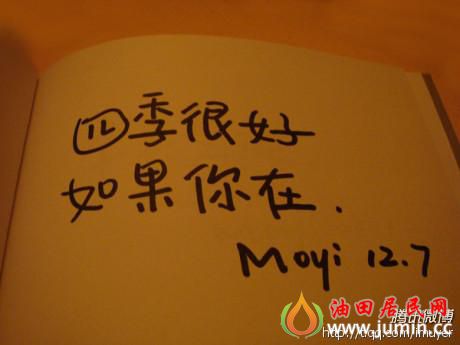 四季很好
如果你在.
Moyi 12.7
油田居民网
腾讯微博
http://t.qq.com/imuyer
www.jumin.cc